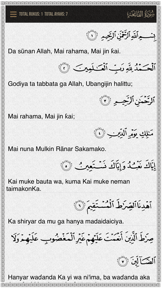 TOTAL RUKUS: 1 TOTAL AYATS: 7
بِسْمِ ٱللَّهِ ٱلرَّحْمَٰنِ ٱلرَّحِيمِ
Da sũnan Allah, Mai rahama, Mai jin ƙai.
ٱلْحَمْدُ لِلَّهِ رَبِّ ٱلْعَٰلَمِينَ
Godiya ta tabbata ga Allah, Ubangijin halittu;
ٱلرَّحْمَٰنِ ٱلرَّحِيمِ
Mai rahama, Mai jin ƙai;
مَٰلِكِ يَوْمِ ٱلدِّينِ
Mai nuna Mulkin Rãnar Sakamako.
إِيَّاكَ نَعْبُدُ وَإِيَّاكَ نَسْتَعِينُ
Kai muke bauta wa, kuma Kai muke neman
taimakonKa.
ٱهْدِنَا ٱلصِّرَٰطَ ٱلْمُسْتَقِيمَ
Ka shiryar da mu ga hanya madaidaiciya.
صِرَٰطَ ٱلَّذِينَ أَنْعَمْتَ عَلَيْهِمْ غَيْرِ ٱلْمَغْضُوبِ عَلَيْهِمْ وَلَا
ٱلضَّآلِّينَ
Hanyar waɗanda Ka yi wa ni'ima, ba waɗanda aka